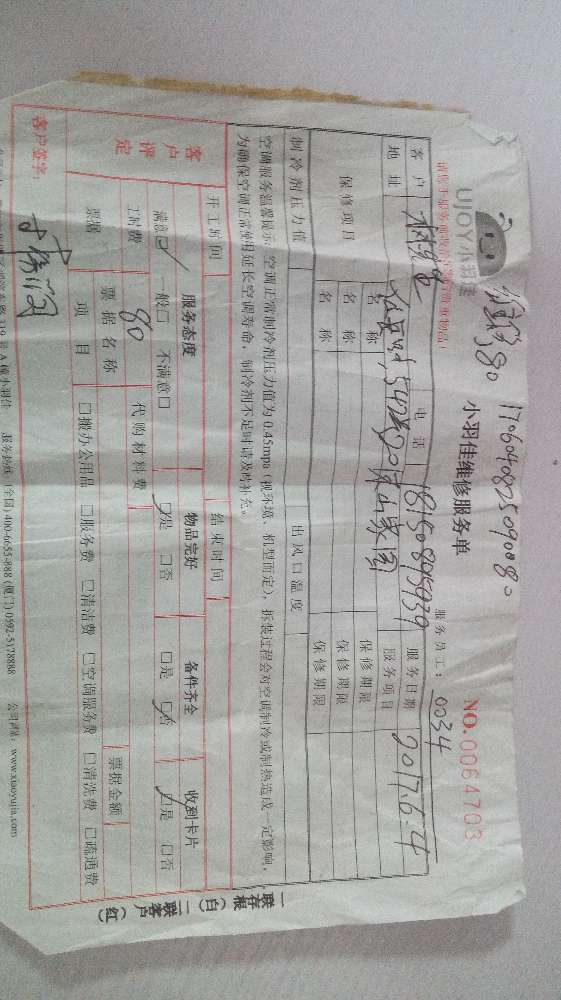 170604082509008
80
UJOY小羽佳
小羽佳维修服务单
服务员工: 0034
NO. 0064703
客户
电话 18150895939
服务日期 2017.6.4
地址
服务项目
保修项目
名称
保修期限
名称
保修期限
名称
保修期限
制冷剂压力值
出风口温度
空调服务温馨提示:空调正常制冷剂压力值为0.45mpa(视环境、机型而定),拆装过程会对空调制冷或制热造成一定影响,
为确保空调正常使用延长空调寿命,制冷剂不足时请及时补充。
开工时间
结束时间
客户评定
服务态度
物品完好
备件齐全
收到卡片
满意☑ 一般□ 不满意□
☑是 □否
□是 ☑否
☑是 □否
工时费 80
代购材料费
票据
票据名称
票据金额
项目
□搬办公用品 □服务费 □清洁费 □空调服务费 □清洗费 □疏通费
客户签字:
服务热线(全国)400-6655-888 (厦门)0592-5178888
公司网址: www.xiaoyujia.com
一联存根(白) 二联客户(红)